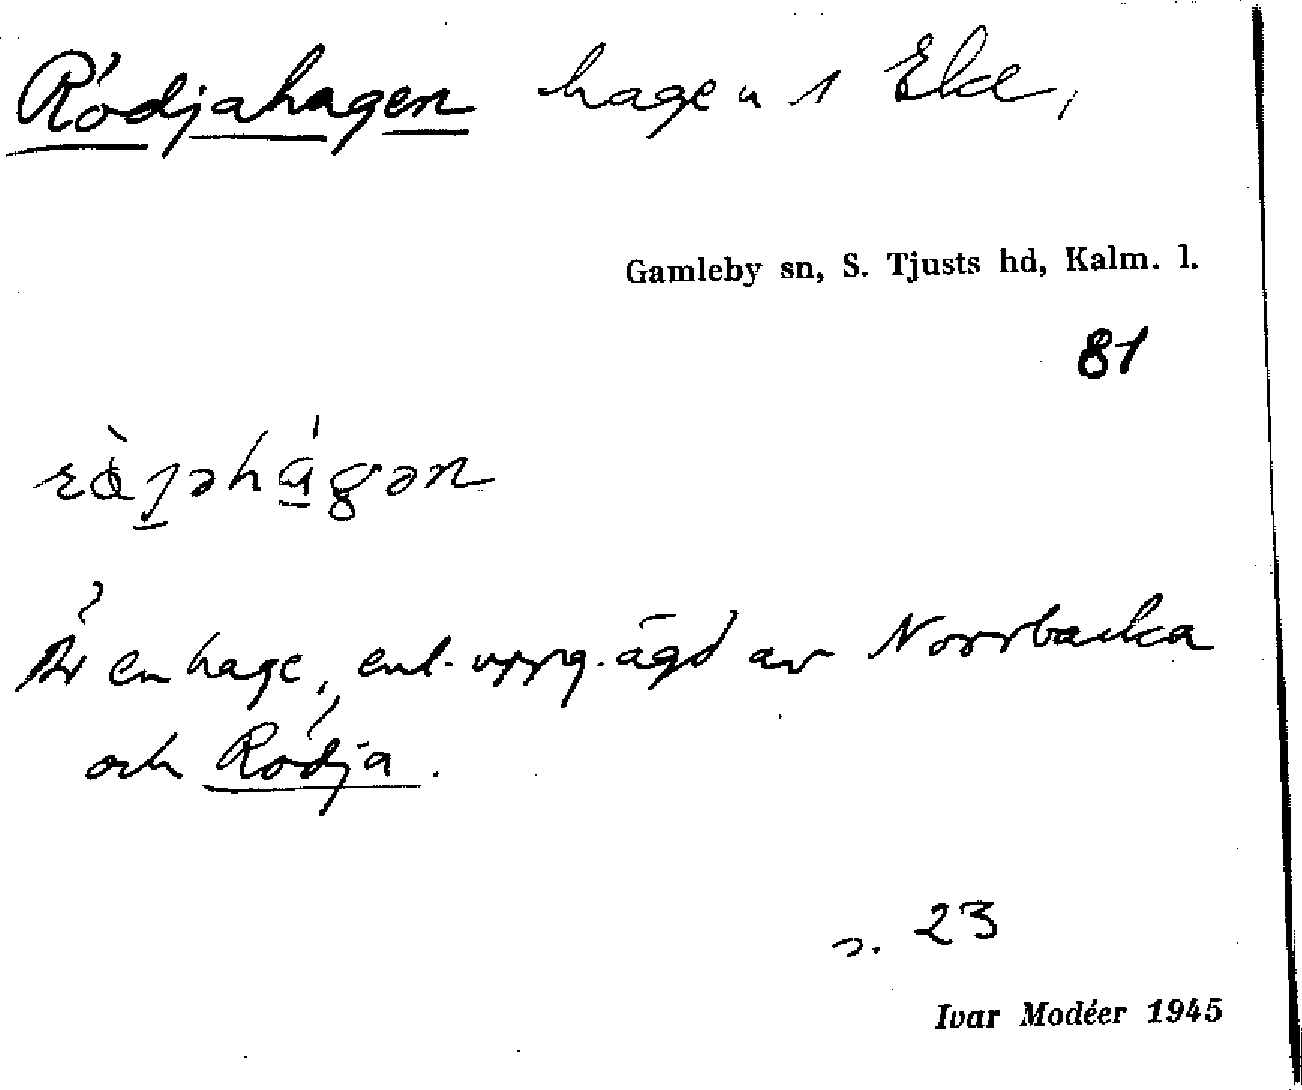 Rödjahagen hage n 1 Eke,
Gamleby sn, S. Tjusts hd, Kalm. l.
81
Är en hage, enl. uppg. ägd av Norrbacka
och Rödja.
s. 23
Ivar Modéer 1945